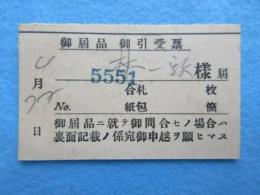 御届品 御引受票
4月22日
5551
林一 様 届
合札 枚
No. 紙包 箇
御届品ニ就テ御問合セノ場合ハ
裏面記載ノ係宛御申越ヲ願ヒマス